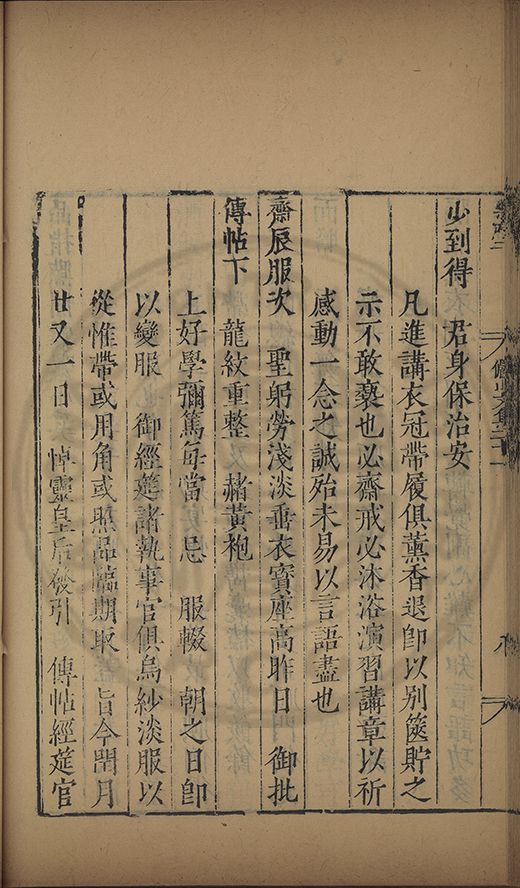 少到得　君身保治安
凡進講衣冠帶履俱薰香退卽以别篋貯之
示不敢褻也必齋戒必沐浴演習講章以祈
感動一念之誠殆未易以言語盡也
齋辰服次　聖躬勞淺淡垂衣寶座高昨日　御批
傳帖下　龍紋重整　赭黃袍
上好學彌篤每當　忌　服輟　朝之日卽
以變服　御經筵諸執事官俱烏紗淡服以
從惟帶或用角或照品臨期取　旨今閏月
廿又一日　悼靈皇后發引　傳帖經筵官